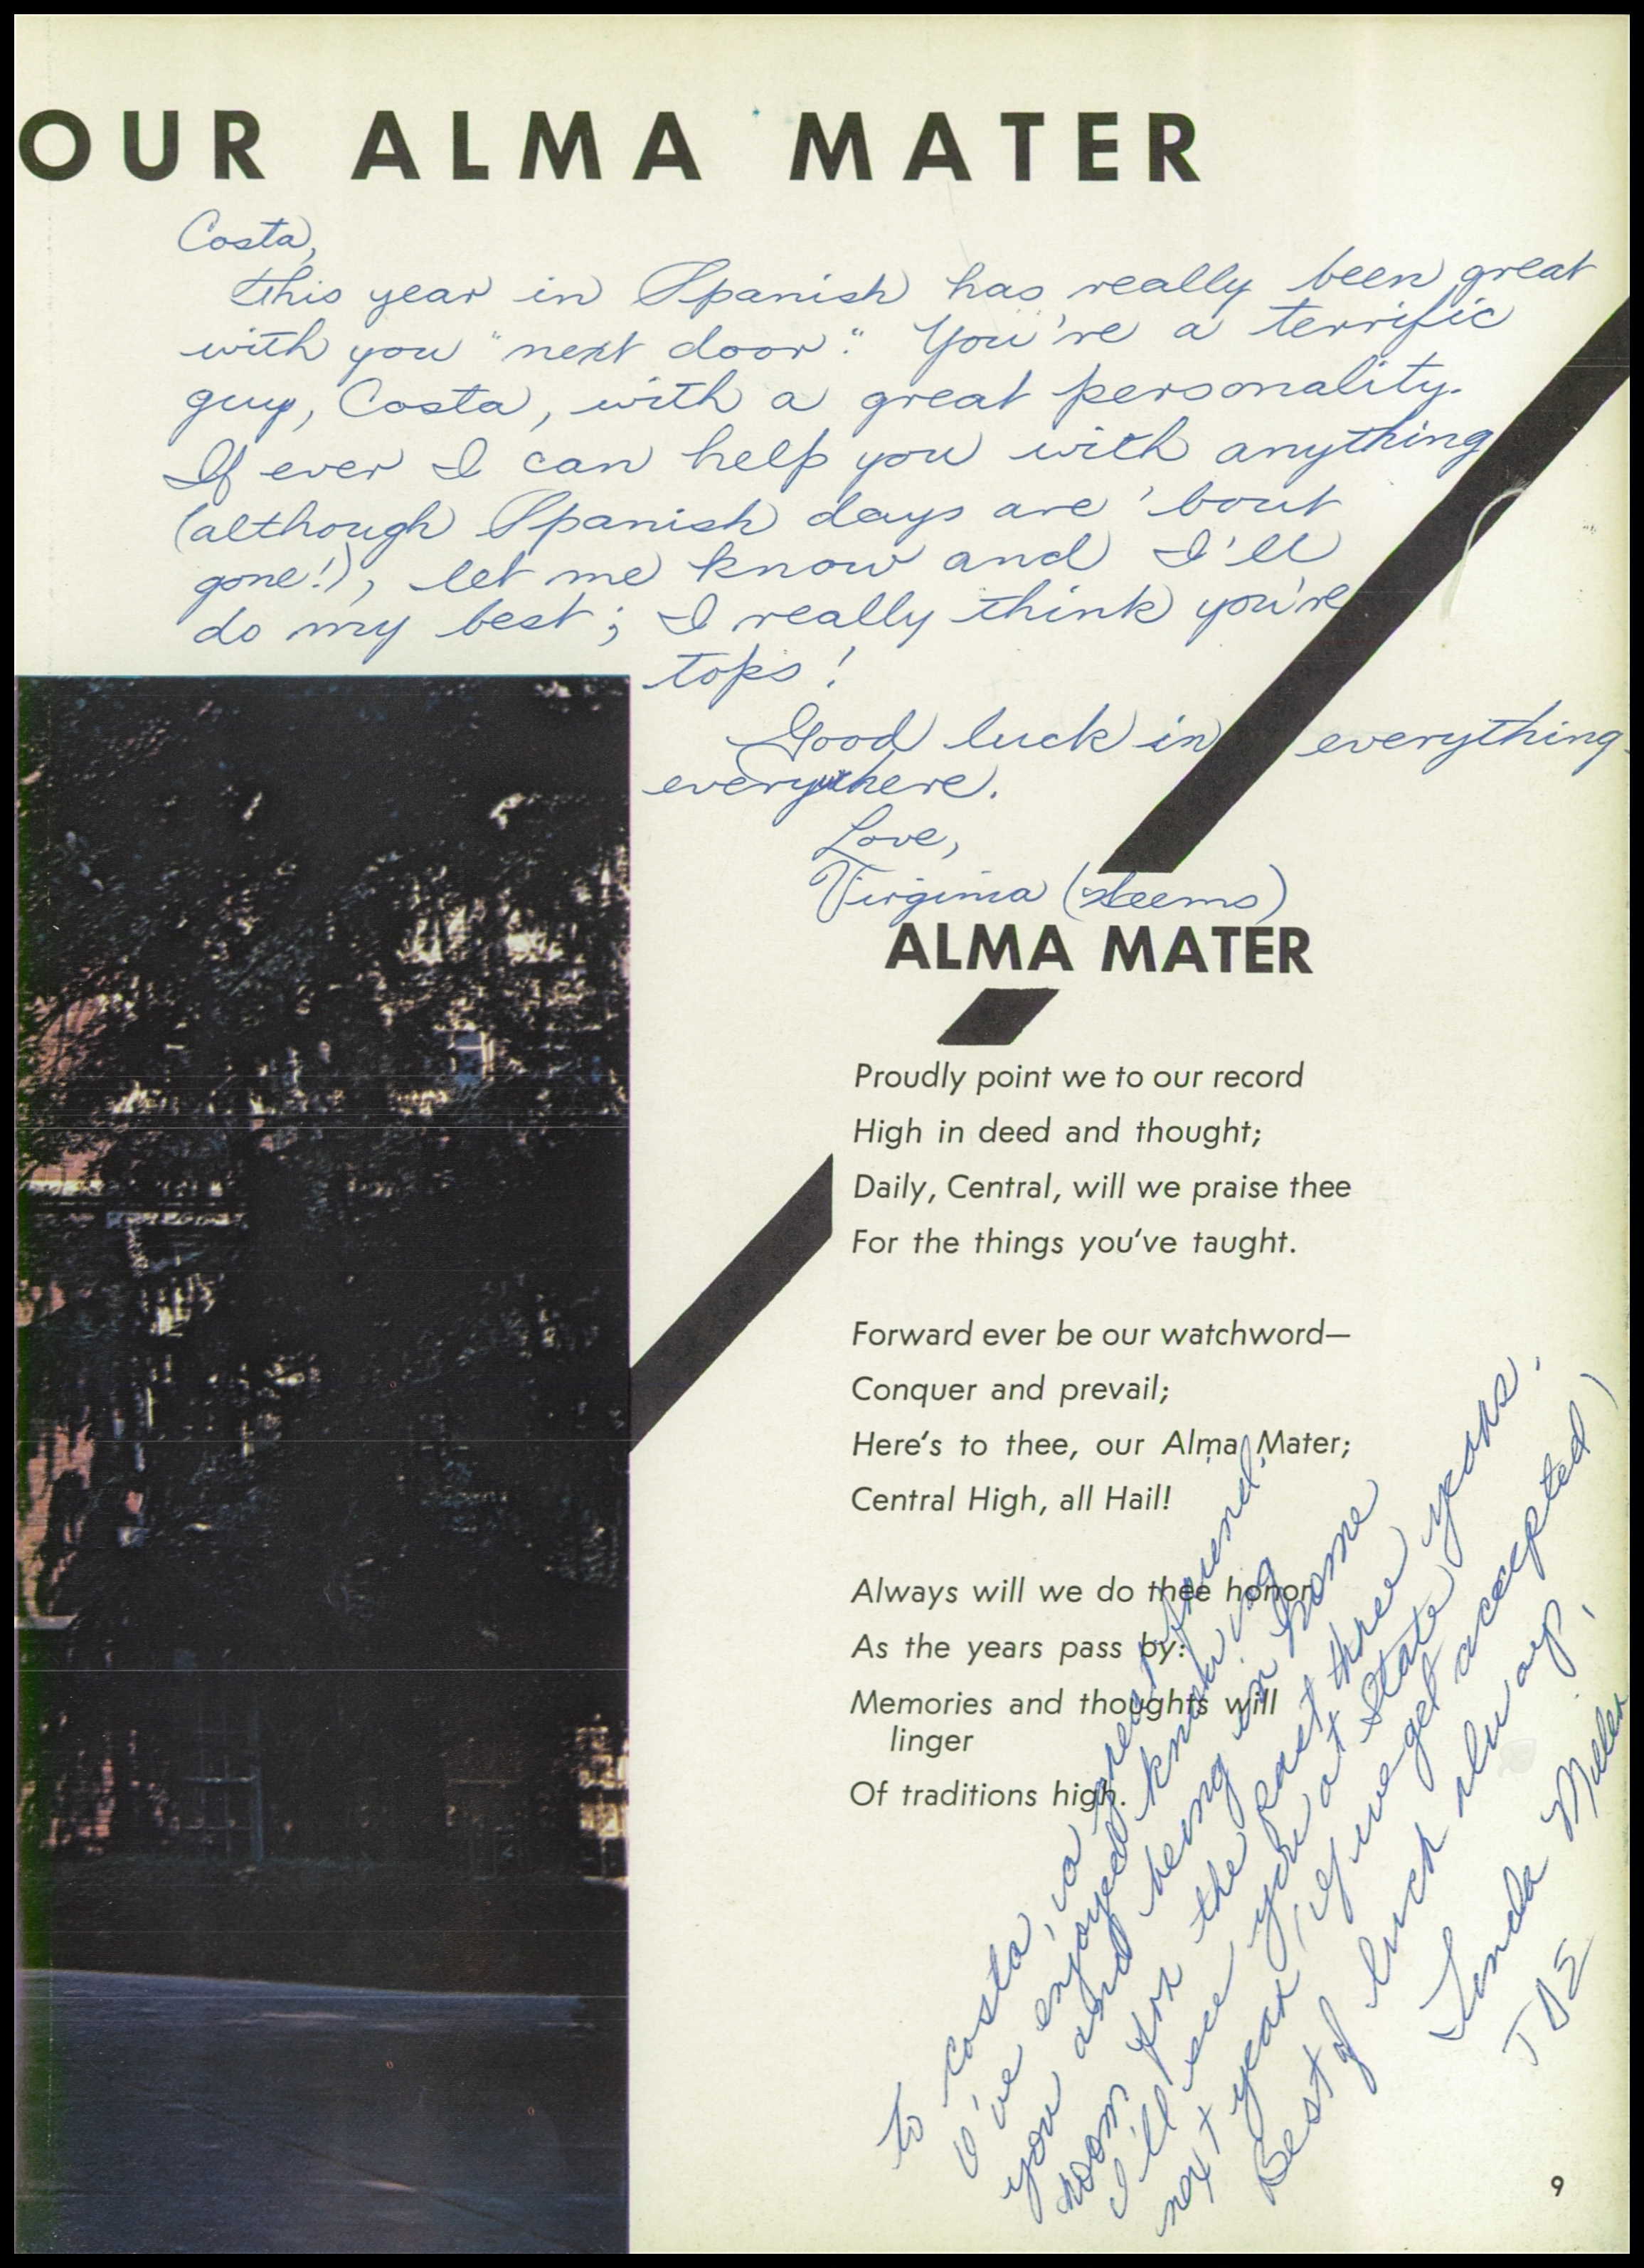 OUR ALMA MATER
Costa,
This year in Spanish has really been great
with you "next door." You're a terrific
guy, Costa, with a great personality.
If ever I can help you with anything
(although Spanish days are 'bout
gone!), let me know and I'll
do my best; I really think you're
tops!
Good luck in everything
everywhere.
Love,
Virginia
ALMA MATER
Proudly point we to our record
High in deed and thought;
Daily, Central, will we praise thee
For the things you've taught.
Forward ever be our watchword—
Conquer and prevail;
Here's to thee, our Alma Mater;
Central High, all Hail!
Always will we do thee honor
As the years pass by:
Memories and thoughts will
linger
Of traditions high.
To Costa, a great friend.
I've enjoyed knowing
you and being in home
room for the past three years.
I'll see you at State
next year (if we get accepted)
Best of luck always,
Linda Miller
9